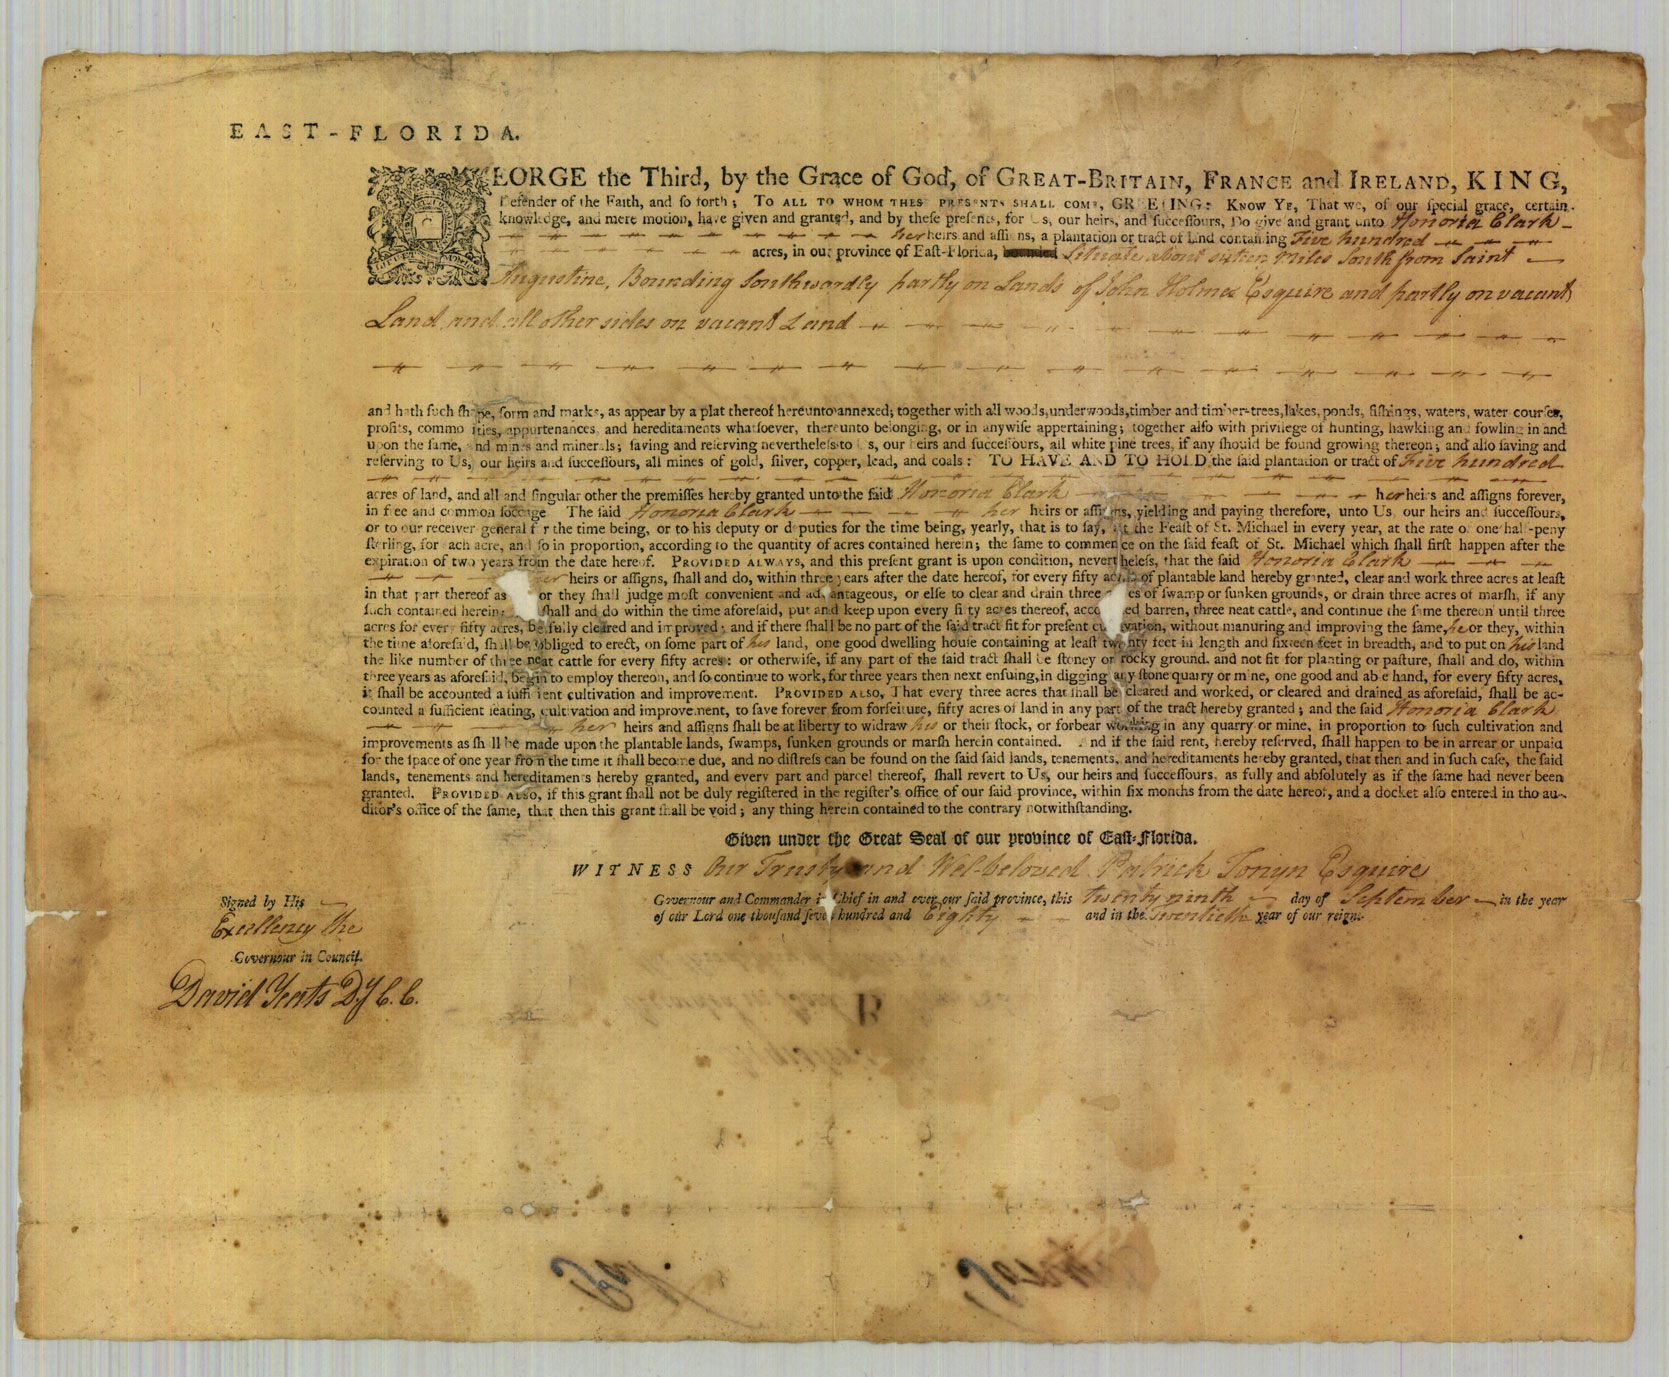 EAST-FLORIDA.
GEORGE the Third, by the Grace of God, of GREAT-BRITAIN, FRANCE and IRELAND, KING,
Defender of the Faith, and so forth; TO ALL TO WHOM THESE PRESENTS SHALL COME, GREETING: KNOW YE, That we, of our special grace, certain
knowledge, and mere motion, have given and granted, and by these presents, for Us, our heirs, and successours, Do give and grant unto Honoria Clark
her heirs and assigns, a plantation or tract of land containing Five hundred
acres, in our province of East-Florida, bounded Situate about sixteen Miles South from Saint
Augustine, Bounding Southwardly partly on Lands of John Holmes Esquire and partly on vacant
Land and all other sides on vacant Land
and hath such shape, form and marks, as appear by a plat thereof hereunto annexed; together with all woods, underwoods, timber and timber-trees, lakes, ponds, fishings, waters, water courses,
profits, commodities, appurtenances, and hereditaments whatsoever, thereunto belonging, or in anywise appertaining; together also with privilege of hunting, hawking and fowling in and
upon the same, and mines and minerals; saving and reserving nevertheless to Us, our heirs and successours, all white pine trees, if any should be found growing thereon; and also saving and
reserving to Us, our heirs and successours, all mines of gold, silver, copper, lead, and coals: TO HAVE AND TO HOLD the said plantation or tract of Five hundred
acres of land, and all and singular other the premisses hereby granted unto the said Honoria Clark her heirs and assigns forever,
in free and common soccage The said Honoria Clark her heirs or assigns, yielding and paying therefore, unto Us our heirs and successours,
or to our receiver general for the time being, or to his deputy or deputies for the time being, yearly, that is to say, at the Feast of St. Michael in every year, at the rate of one half-peny
sterling, for each acre, and so in proportion, according to the quantity of acres contained herein; the same to commence on the said feast of St. Michael which shall first happen after the
expiration of two years from the date hereof. PROVIDED ALWAYS, and this present grant is upon condition, nevertheless, that the said Honoria Clark
her heirs or assigns, shall and do, within three years after the date hereof, for every fifty acres of plantable land hereby granted, clear and work three acres at least
in that part thereof as or they shall judge most convenient and advantageous, or else to clear and drain three acres of swamp or sunken grounds, or drain three acres of marsh, if any
such contained herein; shall and do within the time aforesaid, put and keep upon every fifty acres thereof, accounted barren, three neat cattle, and continue the same thereon until three
acres for every fifty acres, be fully cleared and improved; and if there shall be no part of the said tract fit for present cultivation, without manuring and improving the same, he or they, within
the time aforesaid, shall be obliged to erect, on some part of his land, one good dwelling house containing at least twenty feet in length and sixteen feet in breadth, and to put on his land
the like number of three neat cattle for every fifty acres: or otherwise, if any part of the said tract shall be stoney or rocky ground. and not fit for planting or pasture, shall and do, within
three years as aforesaid, begin to employ thereon, and so continue to work, for three years then next ensuing, in digging any stone quarry or mine, one good and able hand, for every fifty acres,
it shall be accounted a sufficient cultivation and improvement. PROVIDED ALSO, That every three acres that shall be cleared and worked, or cleared and drained as aforesaid, shall be ac-
counted a sufficient seating, cultivation and improvement, to save forever from forfeiture, fifty acres of land in any part of the tract hereby granted; and the said Honoria Clark
her heirs and assigns shall be at liberty to widraw his or their stock, or forbear working in any quarry or mine, in proportion to such cultivation and
improvements as shall be made upon the plantable lands, swamps, sunken grounds or marsh herein contained. And if the said rent, hereby reserved, shall happen to be in arrear or unpaid
for the space of one year from the time it shall become due, and no distress can be found on the said said lands, tenements, and hereditaments hereby granted, that then and in such case, the said
lands, tenements and hereditaments hereby granted, and every part and parcel thereof, shall revert to Us, our heirs and successours, as fully and absolutely as if the same had never been
granted. PROVIDED ALSO, if this grant shall not be duly registered in the register's office of our said province, within six months from the date hereof, and a docket also entered in tho au-
ditor's office of the same, that then this grant shall be void; any thing herein contained to the contrary notwithstanding.
Given under the Great Seal of our province of East-Florida.
WITNESS Our Trusty and Wel-beloved Patrick Tonyn Esquire
Governour and Commander in Chief in and over our said province, this twenty ninth day of September in the year
of our Lord one thousand seven hundred and Eighty and in the twentieth year of our reign.
Signed by His
Excellency the
Governour in Council.
David Yeats Dy C. C.